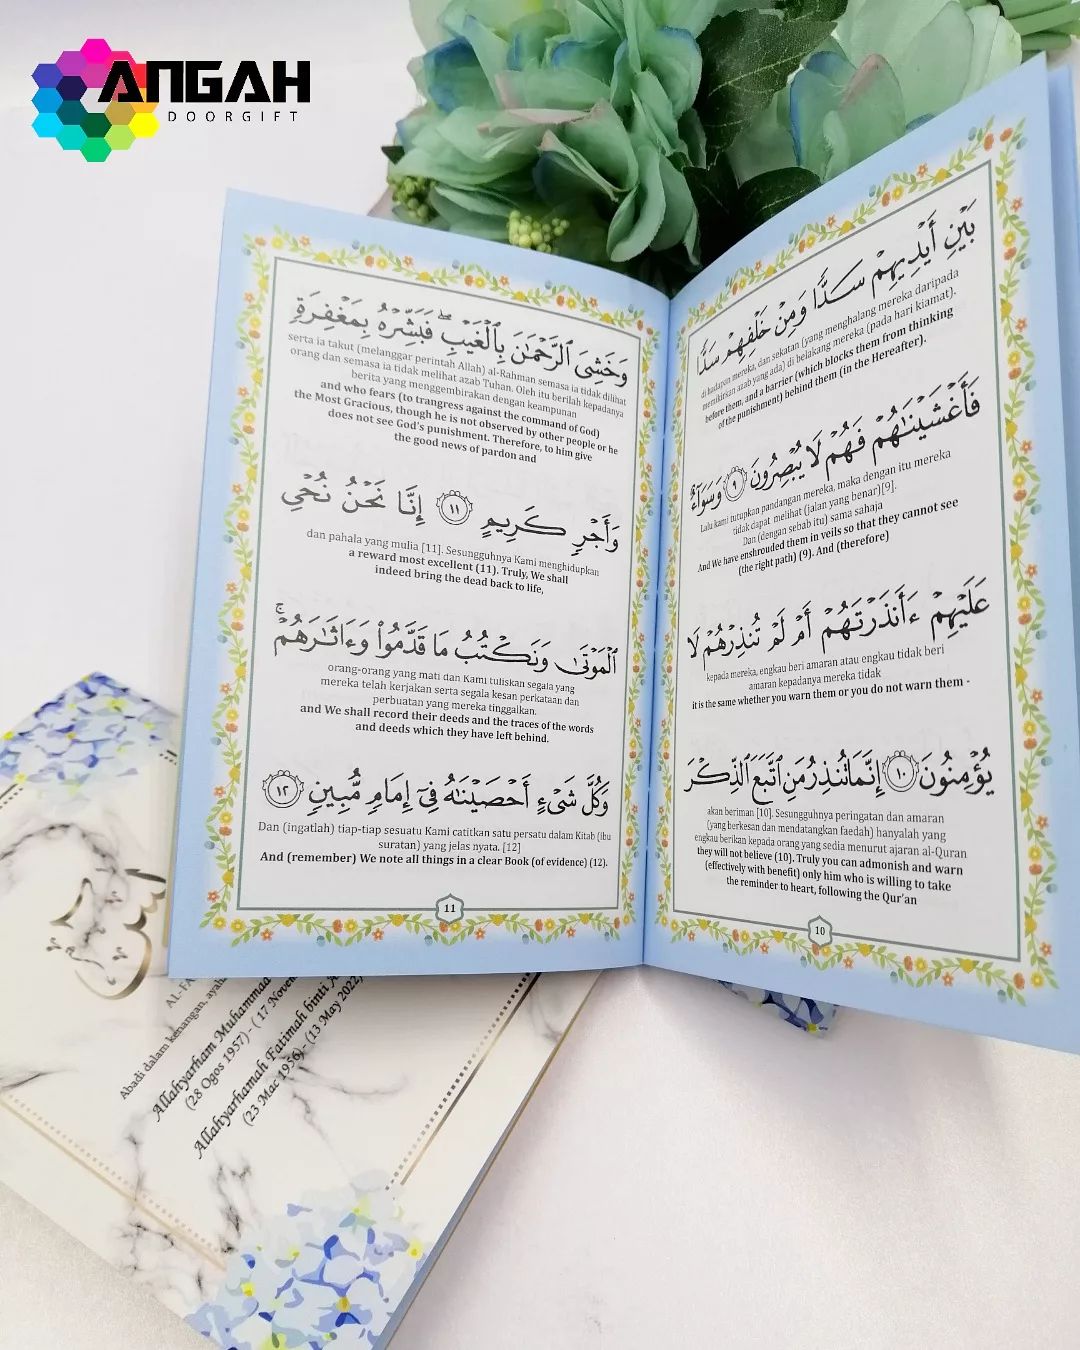 ANGAH
DOORGIFT
بَيْنِ أَيْدِيهِمْ سَدًّا وَمِنْ خَلْفِهِمْ سَدًّا
di hadapan mereka, dan sekatan (yang menghalang mereka daripada
memikirkan azab yang ada) di belakang mereka (pada hari kiamat).
before them, and a barrier (which blocks them from thinking
of the punishment) behind them (in the Hereafter).
فَأَغْشَيْنَٰهُمْ فَهُمْ لَا يُبْصِرُونَ ٩ وَسَوَآءٌ
Lalu kami tutupkan pandangan mereka, maka dengan itu mereka
tidak dapat melihat (jalan yang benar)[9].
Dan (dengan sebab itu) sama sahaja
And We have enshrouded them in veils so that they cannot see
(the right path) (9). And (therefore)
عَلَيْهِمْ ءَأَنذَرْتَهُمْ أَمْ لَمْ تُنذِرْهُمْ لَا
kepada mereka, engkau beri amaran atau engkau tidak beri
amaran kepadanya mereka tidak
it is the same whether you warn them or you do not warn them -
يُؤْمِنُونَ ١٠ إِنَّمَا تُنذِرُ مَنِ ٱتَّبَعَ ٱلذِّكْرَ
akan beriman [10]. Sesungguhnya peringatan dan amaran
(yang berkesan dan mendatangkan faedah) hanyalah yang
engkau berikan kepada orang yang sedia menurut ajaran al-Quran
they will not believe (10). Truly you can admonish and warn
(effectively with benefit) only him who is willing to take
the reminder to heart, following the Qur'an
10
وَخَشِىَ ٱلرَّحْمَٰنَ بِٱلْغَيْبِ ۖ فَبَشِّرْهُ بِمَغْفِرَةٍ
serta ia takut (melanggar perintah Allah) al-Rahman semasa ia tidak dilihat
orang dan semasa ia tidak melihat azab Tuhan. Oleh itu berilah kepadanya
berita yang menggembirakan dengan keampunan
and who fears (to trangress against the command of God)
the Most Gracious, though he is not observed by other people or he
does not see God's punishment. Therefore, to him give
the good news of pardon and
وَأَجْرٍ كَرِيمٍ ١١ إِنَّا نَحْنُ نُحْىِ
dan pahala yang mulia [11]. Sesungguhnya Kami menghidupkan
a reward most excellent (11). Truly, We shall
indeed bring the dead back to life,
ٱلْمَوْتَىٰ وَنَكْتُبُ مَا قَدَّمُوا۟ وَءَاثَٰرَهُمْ ۚ
orang-orang yang mati dan Kami tuliskan segala yang
mereka telah kerjakan serta segala kesan perkataan dan
perbuatan yang mereka tinggalkan.
and We shall record their deeds and the traces of the words
and deeds which they have left behind.
وَكُلَّ شَىْءٍ أَحْصَيْنَٰهُ فِىٓ إِمَامٍ مُّبِينٍ ١٢
Dan (ingatlah) tiap-tiap sesuatu Kami catitkan satu persatu dalam Kitab (ibu
suratan) yang jelas nyata. [12]
And (remember) We note all things in a clear Book (of evidence) (12).
11
AL-FA
Abadi dalam kenangan, ayah
Allahyarham Muhammad
(28 Ogos 1957) - (17 Novem
Allahyarhamah Fatimah binti A
(23 Mac 1956) - (13 May 2022)